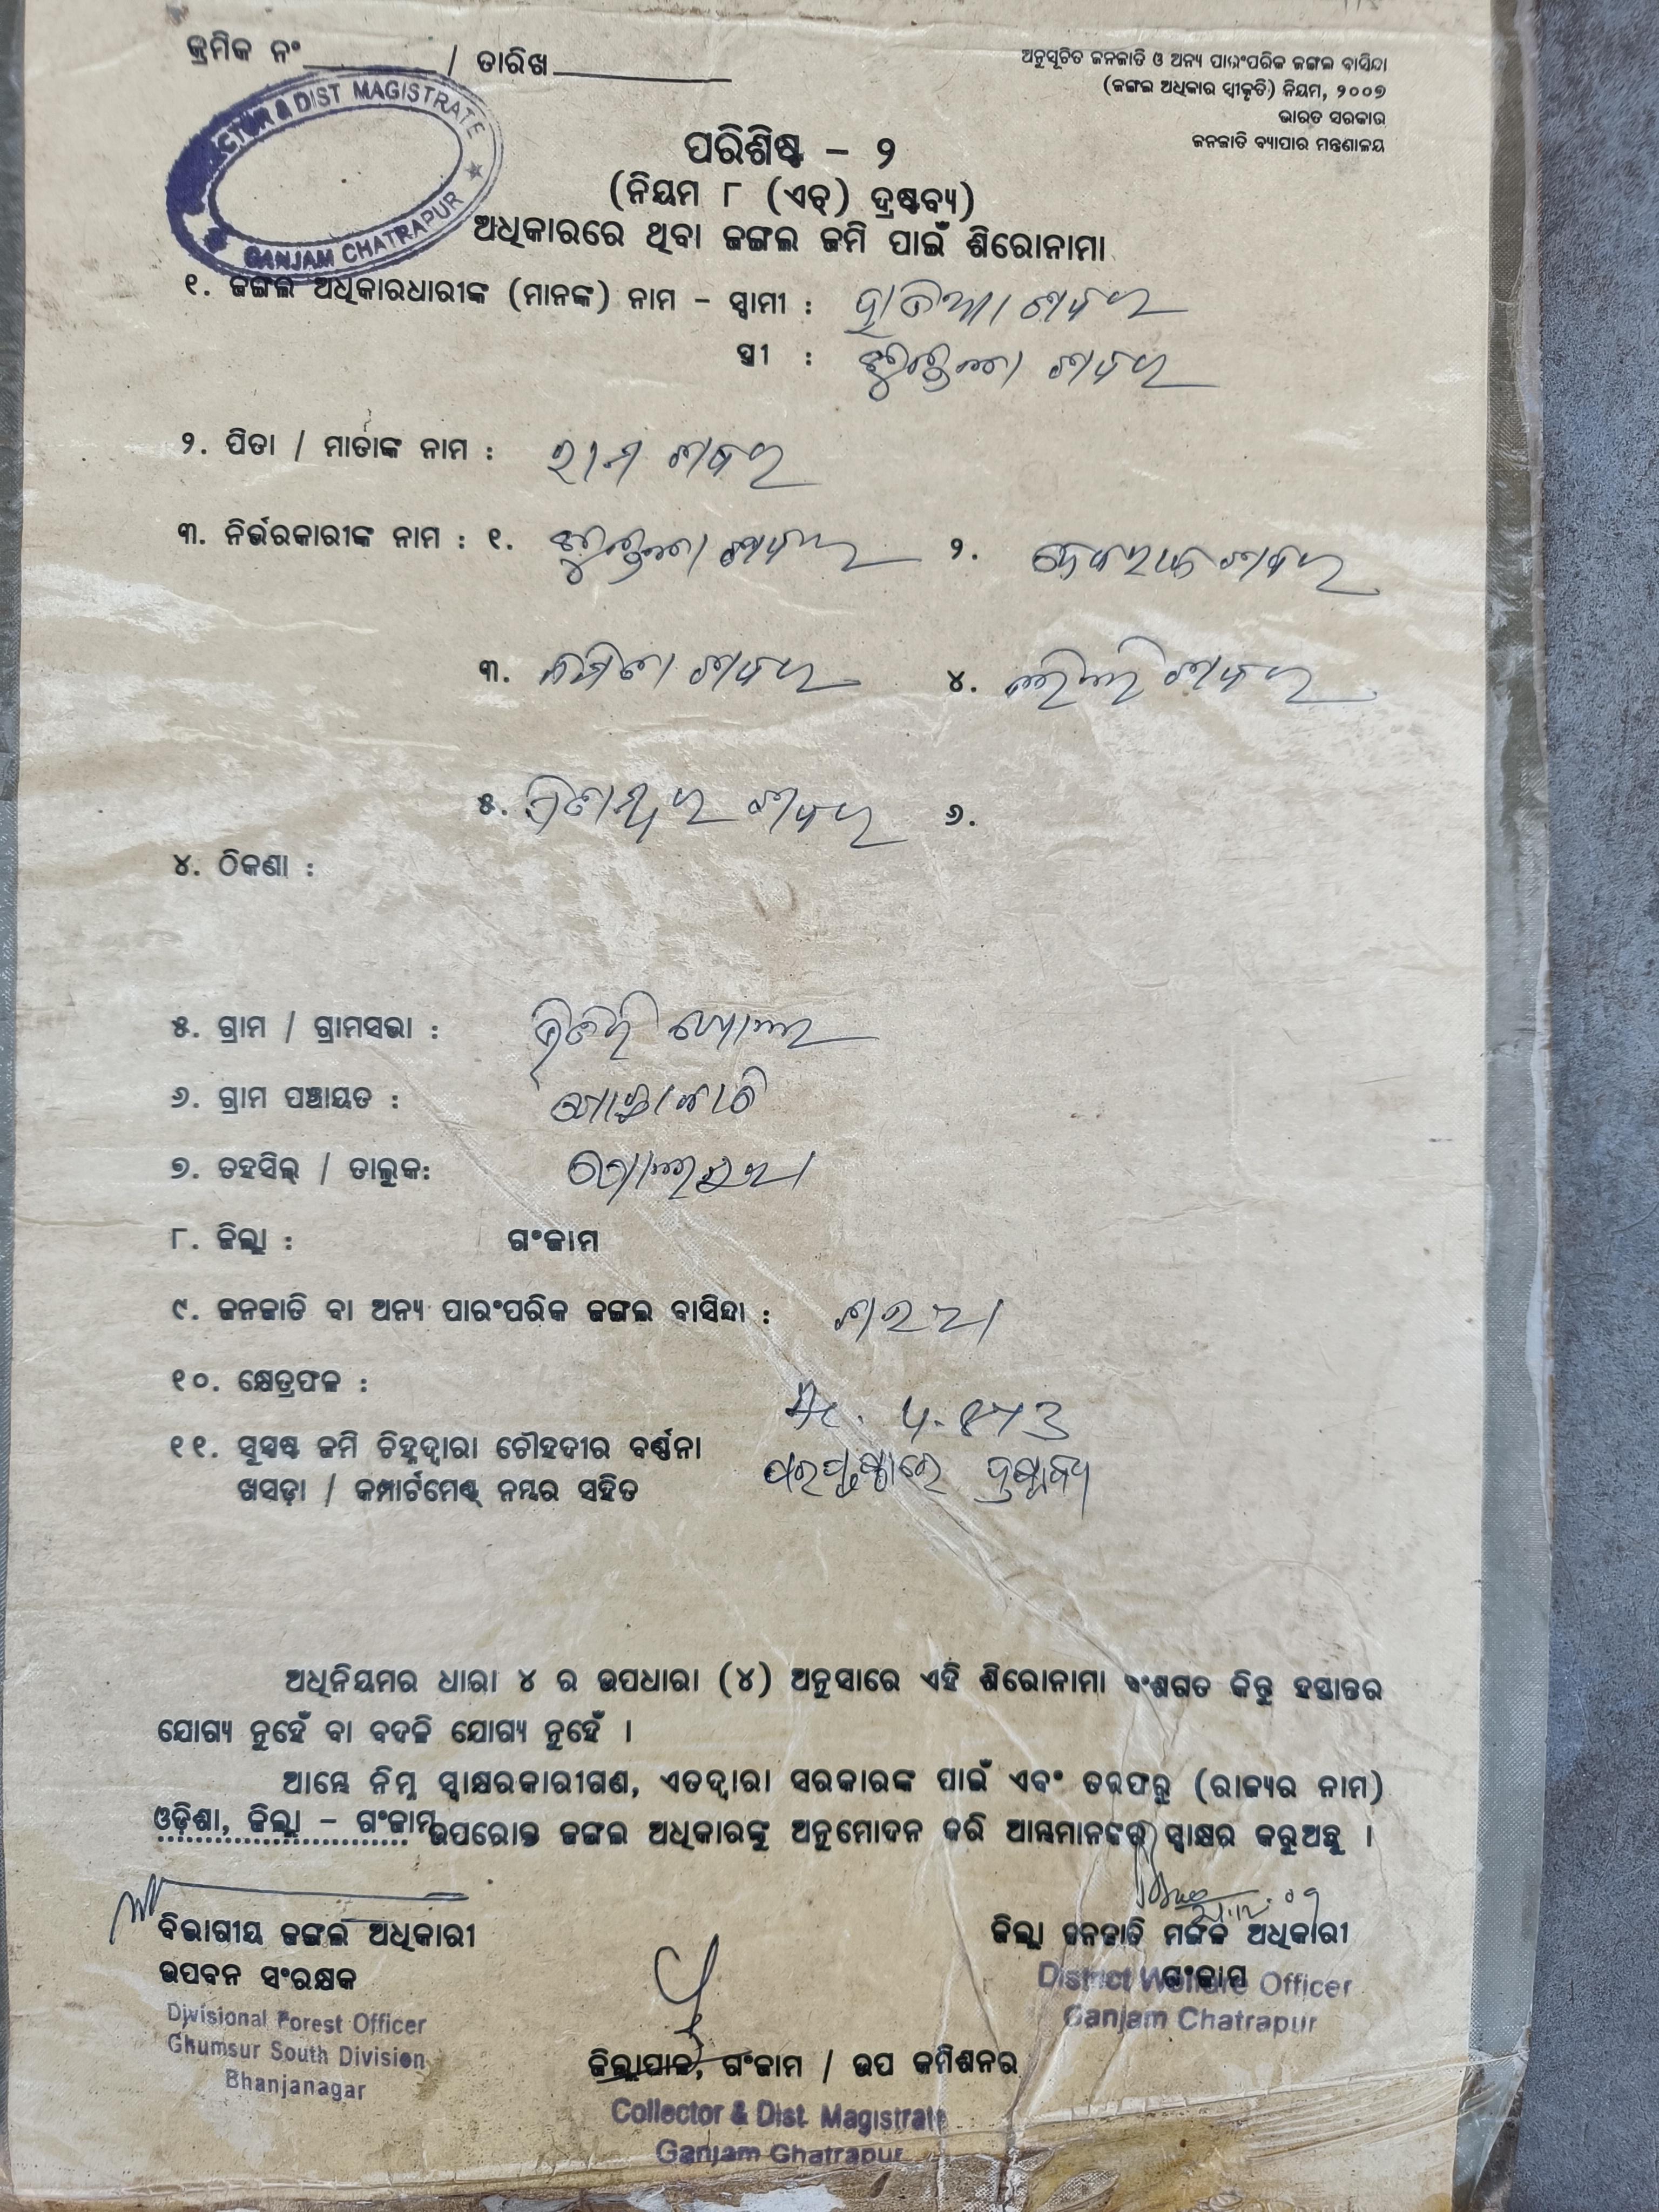 କ୍ରମିକ ନଂ / ତାରିଖ
ଅନୁସୂଚିତ ଜନଜାତି ଓ ଅନ୍ୟ ପାରଂପରିକ ଜଙ୍ଗଲ ବାସିନ୍ଦା
(ଜଙ୍ଗଲ ଅଧିକାର ସ୍ୱୀକୃତି) ନିୟମ, ୨୦୦୭
ଭାରତ ସରକାର
ଜନଜାତି ବ୍ୟାପାର ମନ୍ତ୍ରଣାଳୟ
& DIST MAGISTRATE
GANJAM CHATRAPUR
ପରିଶିଷ୍ଟ – ୨
(ନିୟମ ୮ (ଏଚ୍) ଦ୍ରଷ୍ଟବ୍ୟ)
ଅଧିକାରରେ ଥିବା ଜଙ୍ଗଲ ଜମି ପାଇଁ ଶିରୋନାମା
୧. ଜଙ୍ଗଲ ଅଧିକାରଧାରୀଙ୍କ (ମାନଙ୍କ) ନାମ – ସ୍ୱାମୀ : ଶବର
ସ୍ତ୍ରୀ : ଶବର
୨. ପିତା / ମାତାଙ୍କ ନାମ : ରାମ ଶବର
୩. ନିର୍ଭରକାରୀଙ୍କ ନାମ : ୧. ଶବର ୨. ଶବର
୩. ଶବର ୪. ଶବର
୫. ଶବର ୬.
୪. ଠିକଣା :
୫. ଗ୍ରାମ / ଗ୍ରାମସଭା :
୬. ଗ୍ରାମ ପଞ୍ଚାୟତ :
୭. ତହସିଲ୍ / ତାଲୁକ:
୮. ଜିଲ୍ଲା : ଗଂଜାମ
୯. ଜନଜାତି ବା ଅନ୍ୟ ପାରଂପରିକ ଜଙ୍ଗଲ ବାସିନ୍ଦା :
୧୦. କ୍ଷେତ୍ରଫଳ :
୧୧. ସୁସ୍ପଷ୍ଟ ଜମି ଚିହ୍ନଦ୍ୱାରା ଚୌହଦୀର ବର୍ଣ୍ଣନା ପରପୃଷ୍ଠାରେ ଦ୍ରଷ୍ଟବ୍ୟ
ଖସଡ଼ା / କମ୍ପାର୍ଟମେଣ୍ଟ୍ ନମ୍ୱର ସହିତ
ଅଧିନିୟମର ଧାରା ୪ ର ଉପଧାରା (୪) ଅନୁସାରେ ଏହି ଶିରୋନାମା ବଂଶଗତ କିନ୍ତୁ ହସ୍ତାନ୍ତର
ଯୋଗ୍ୟ ନୁହେଁ ବା ବଦଳି ଯୋଗ୍ୟ ନୁହେଁ ।
ଆମ୍ଭେ ନିମ୍ନ ସ୍ୱାକ୍ଷରକାରୀଗଣ, ଏତଦ୍ଦ୍ୱାରା ସରକାରଙ୍କ ପାଇଁ ଏବଂ ତରଫରୁ (ରାଜ୍ୟର ନାମ)
ଓଡ଼ିଶା, ଜିଲ୍ଲା – ଗଂଜାମ ଉପରୋକ୍ତ ଜଙ୍ଗଲ ଅଧିକାରଙ୍କୁ ଅନୁମୋଦନ କରି ଆମ୍ଭମାନଙ୍କର ସ୍ୱାକ୍ଷର କରୁଅଛୁ ।
ବିଭାଗୀୟ ଜଙ୍ଗଲ ଅଧିକାରୀ
ଉପବନ ସଂରକ୍ଷକ
Divisional Forest Officer
Ghumsur South Division
Bhanjanagar
ଜିଲ୍ଲା ଜନଜାତି ମଙ୍ଗଳ ଅଧିକାରୀ
ଗଂଜାମ
District Welfare Officer
Ganjam Chatrapur
ଜିଲ୍ଲାପାଳ, ଗଂଜାମ / ଉପ କମିଶନର
Collector & Dist. Magistrate
Ganjam Chatrapur